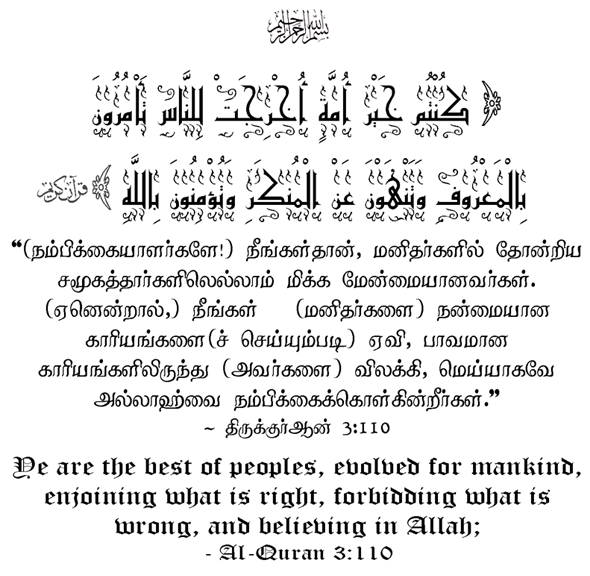 بسم الله الرحمن الرحيم
كُنْتُمْ خَيْرَ أُمَّةٍ أُخْرِجَتْ لِلنَّاسِ تَأْمُرُونَ
بِالْمَعْرُوفِ وَتَنْهَوْنَ عَنِ الْمُنكَرِ وَتُؤْمِنُونَ بِاللَّهِ قرآن كريم
“(நம்பிக்கையாளர்களே!) நீங்கள்தான், மனிதர்களில் தோன்றிய
சமூகத்தார்களிலெல்லாம் மிக்க மேன்மையானவர்கள்.
(ஏனென்றால்,) நீங்கள் (மனிதர்களை) நன்மையான
காரியங்களை(ச் செய்யும்படி) ஏவி, பாவமான
காரியங்களிலிருந்து (அவர்களை) விலக்கி, மெய்யாகவே
அல்லாஹ்வை நம்பிக்கைக்கொள்கின்றீர்கள்.”
~ திருக்குர்ஆன் 3:110
Ye are the best of peoples, evolved for mankind,
enjoining what is right, forbidding what is
wrong, and believing in Allah;
- Al-Quran 3:110